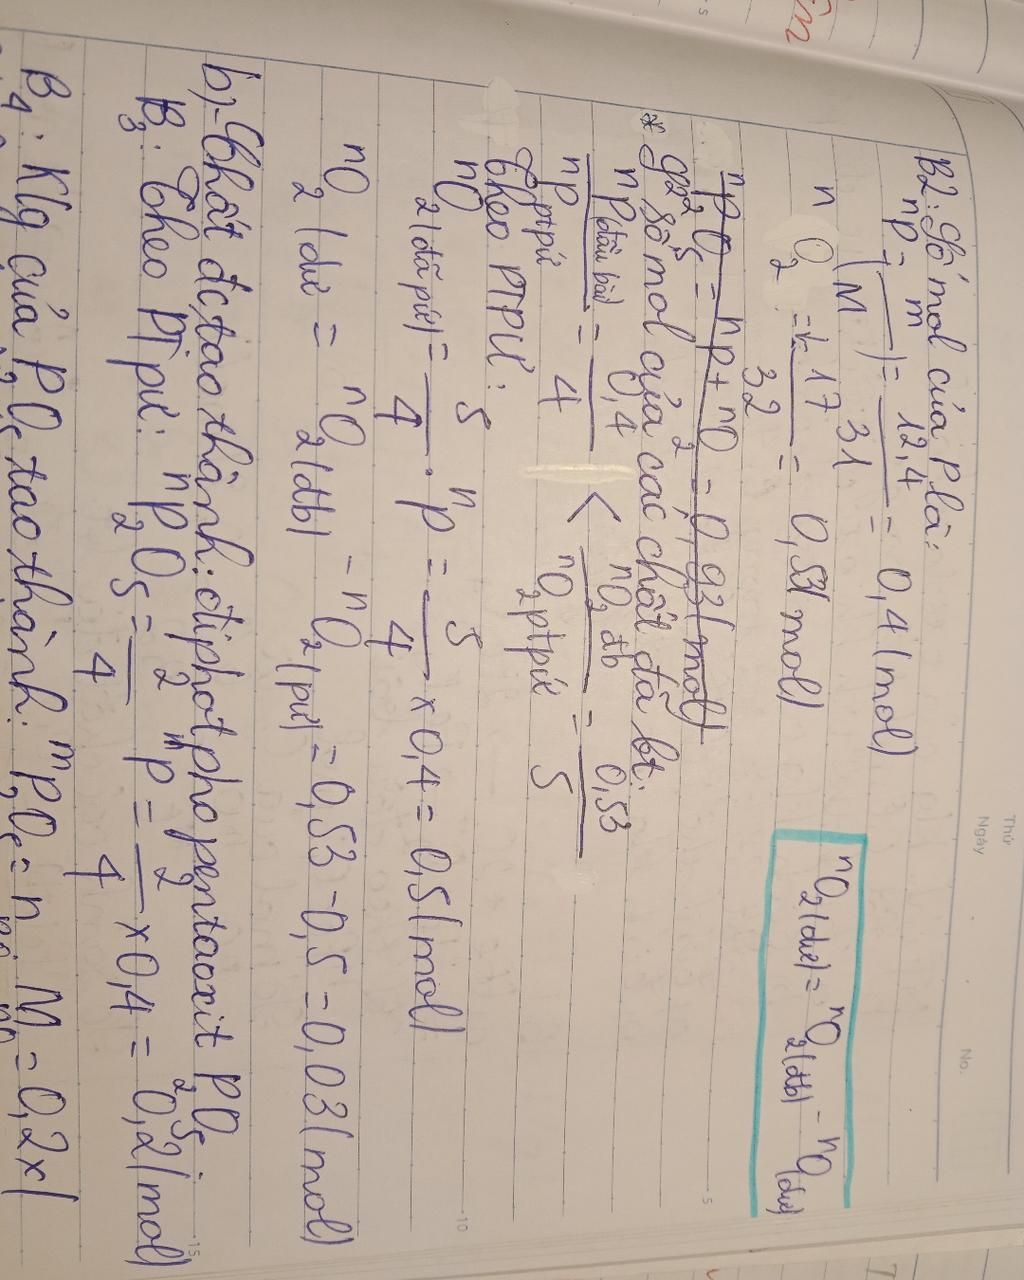 Thứ
Ngày
No.
B2: Số mol của P là:
nP = m/M = 12,4/31 = 0,4 (mol)
nO2 = 17/32 = 0,531 mol)
nO2 (dư) = nO2 (đb) - nO2 (dư)
nP2O5 = nP + nO2 = 0,931 mol)
* số mol của các chất đã bt:
nP (đầu bài)/nP ptpư = 0,4/4 < nO2 đb/nO2 ptpư = 0,53/5
Theo PTPƯ:
nO2 (đã pư) = 5/4 . nP = 5/4 x 0,4 = 0,5 (mol)
nO2 (dư = nO2 (đb) - nO2 (pư) = 0,53 - 0,5 = 0,03 (mol)
b,- Chất đc tạo thành: điphotpho pentaoxit P2O5
B3: Theo PT pư: nP2O5 = 2/4 nP = 2/4 x 0,4 = 0,2 (mol)
B4: Klg của P2O5 tạo thành: mP2O5 = n . M = 0,2 x (
5
10
15